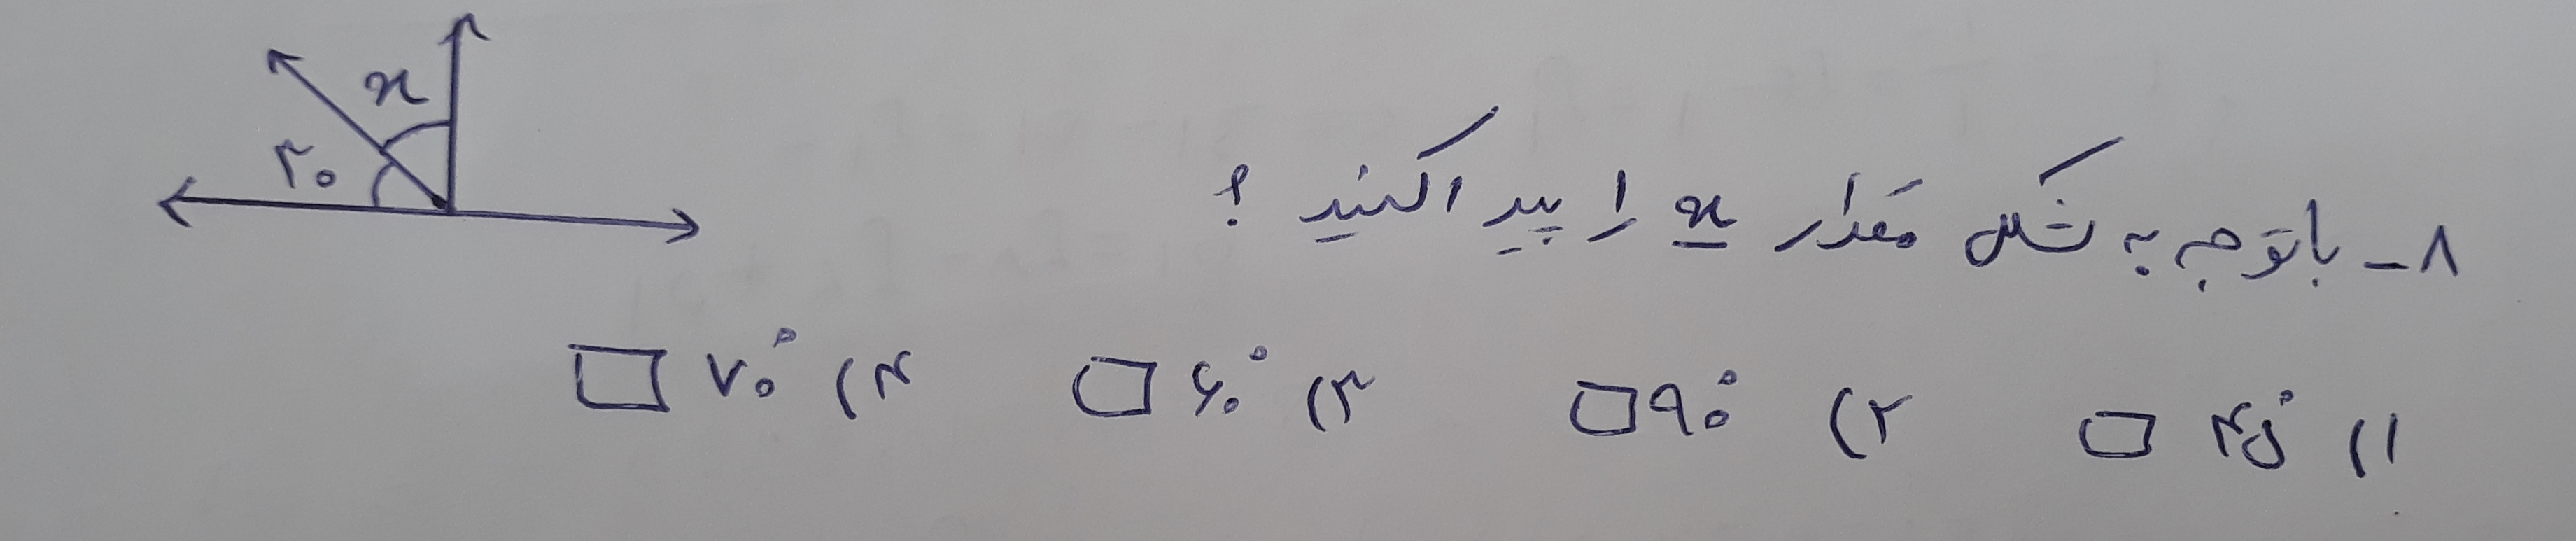 ۸- با توجه به شکل مقدار x را پیدا کنید ؟
x
۳۰
۱) ۴۵° □ ۲) ۹۰° □ ۳) ۶۰° □ ۴) ۷۰° □